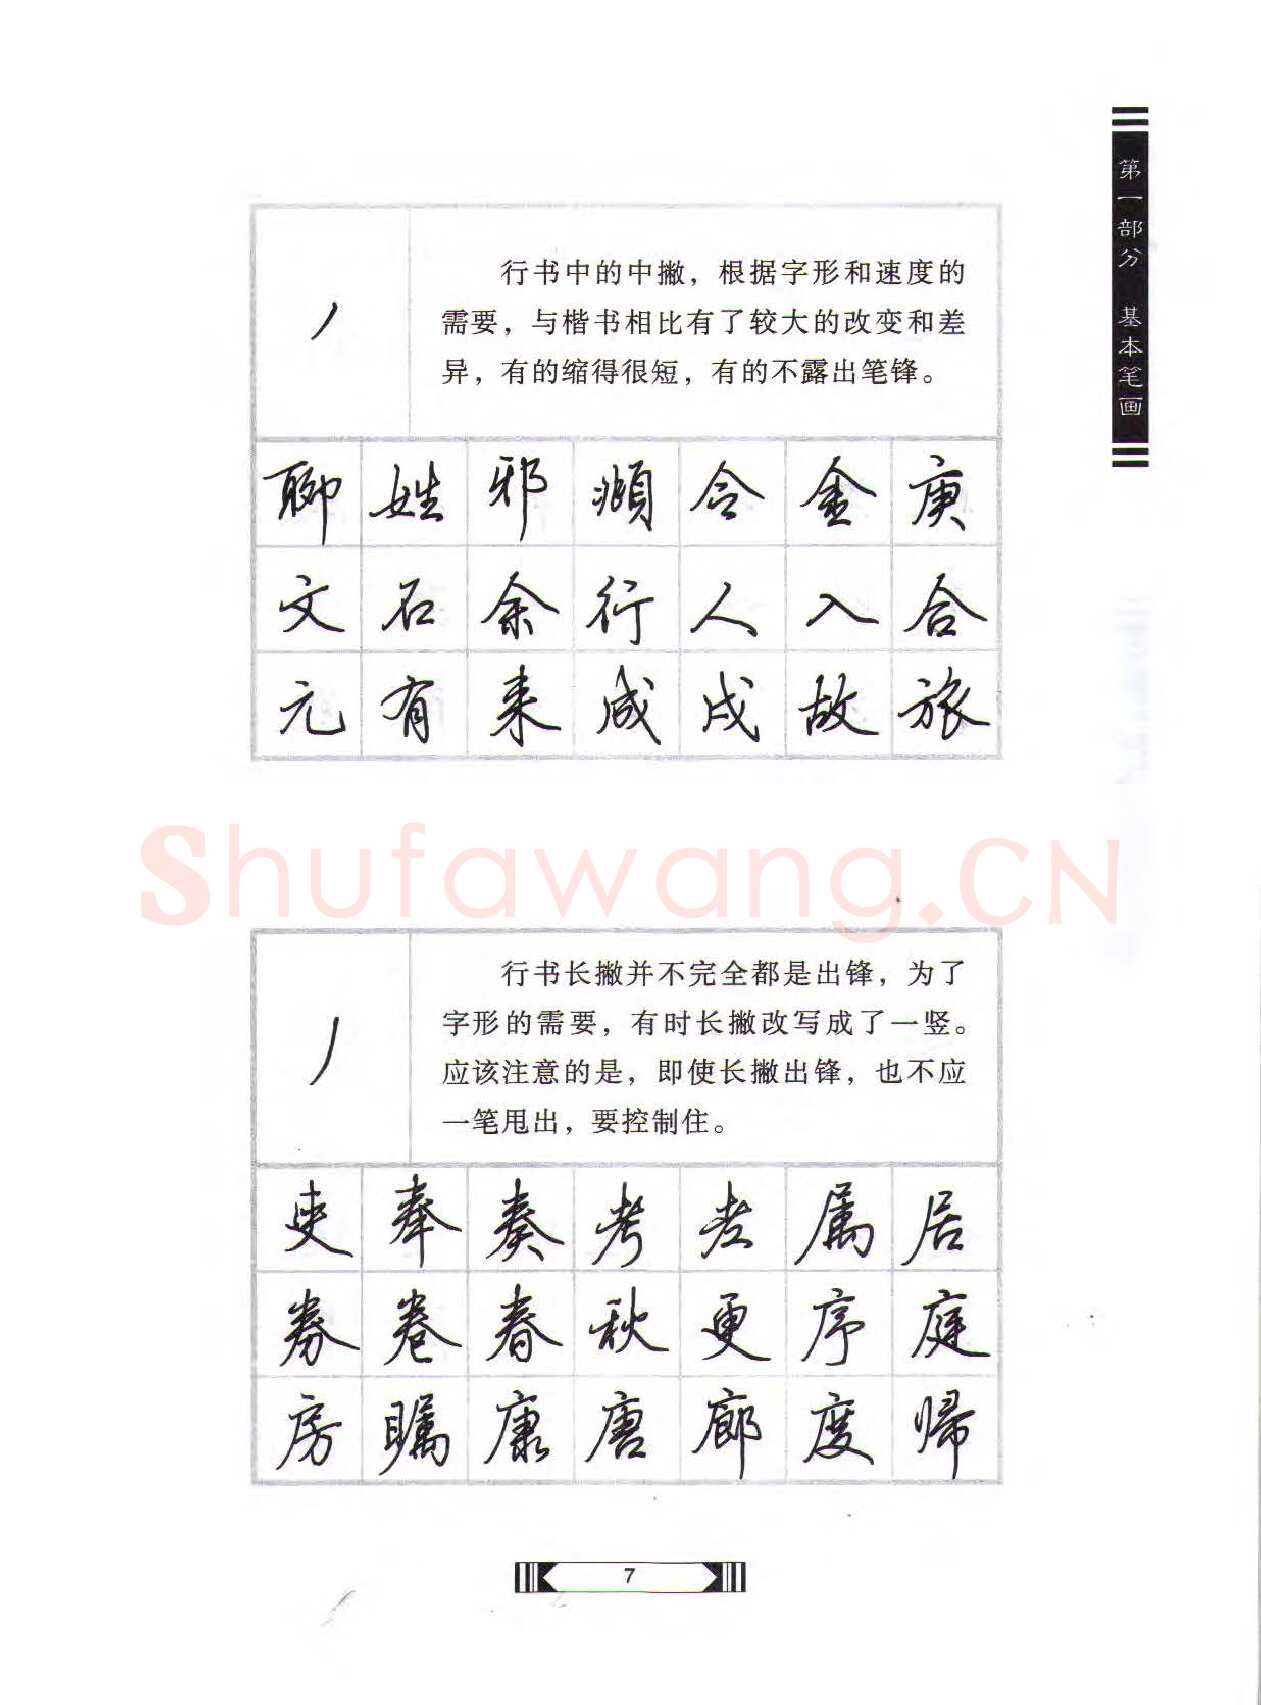 第一部分 基本笔画
行书中的中撇，根据字形和速度的
需要，与楷书相比有了较大的改变和差
异，有的缩得很短，有的不露出笔锋。
聊 姓 邪 濒 令 金 庚
文 石 余 行 人 入 合
元 有 来 咸 戌 故 旅
Shufawang.CN
行书长撇并不完全都是出锋，为了
字形的需要，有时长撇改写成了一竖。
应该注意的是，即使长撇出锋，也不应
一笔甩出，要控制住。
吏 奉 奏 考 老 属 居
券 卷 春 秋 更 序 庭
房 瞩 康 唐 廊 度 帰
7